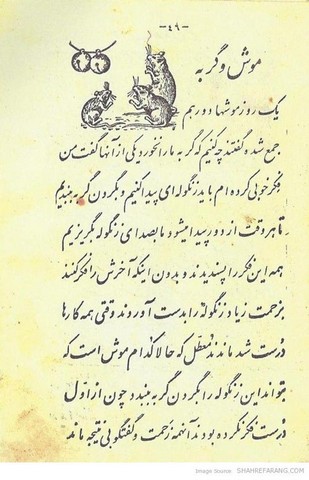 -٤٦-
موش و گربه
یک روز موشها دور هم
جمع شده گفتند چه کنیم که گربه ما را نخورد یکی از آنها گفت من
فکر خوبی کرده ام باید زنگوله ای پیدا کنیم و بگردن گربه ببندیم
تا هر وقت از دور پیدا میشود ما بصدای زنگوله بگریزیم
همه این فکر را پسندیدند و بدون اینکه آخرش را فکر کنند
بزحمت زیاد زنگوله را بدست آوردند وقتی همه کارها
درست شد ماندند معطل که حالا کدام موش است که
بتواند این زنگوله را بگردن گربه ببندد چون از اول
درست فکر نکرده بودند آنهمه زحمت و گفتگو بی نتیجه ماند
Image Source: SHAHREFARANG.COM